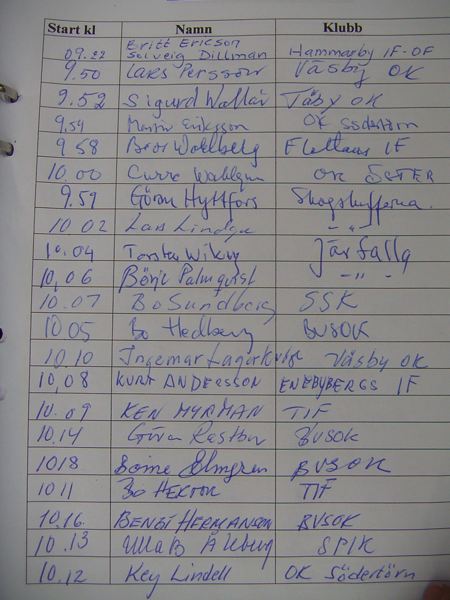 Start kl Namn Klubb
09.22 Britt Ericson Solveig Dillman Hammarby IF-OF
9.50 Lars Persson Väsby OK
9.52 Sigurd Täby OK
9.54 Eriksson OK Södertörn
9 58 Wallberg IF
10.00 OK
9.59 Göran Hyttfors
10 02 Lars - " -
10.04 Järfälla
10,06 Börje Palmqvist - " -
10.07 Bo Sundberg SSK
10 05 Bo Hedberg BVSOK
10 10 Ingemar Väsby OK
10,08 KURT ANDERSSON ENEBYBERGS IF
10.09 KEN MYRMAN TIF
10.14 Göran BVSOK
1018 Elmgren BVSOK
10 11 BO HEKTOR TIF
10.16. BENGT HERMANSON BVSOK
10.13 Ulla B SPIK
10.12 Key Lindell OK Södertörn